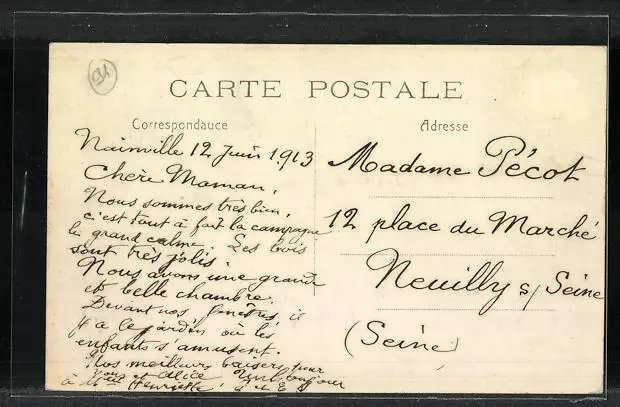 91
CARTE POSTALE
Correspondance
Nainville 12 Juin 1913
Chère Maman,
Nous sommes très bien,
c'est tout à fait la campagne
le grand calme. Les bois
sont très jolis.
Nous avons une grande
et belle chambre.
Devant nos fenêtres il
y a le jardin où les
enfants s'amusent.
Nos meilleurs baisers pour
vous et Alice. Un bonjour
à Henriette
Adresse
Madame Pécot
12 place du Marché
Neuilly s/ Seine
(Seine)